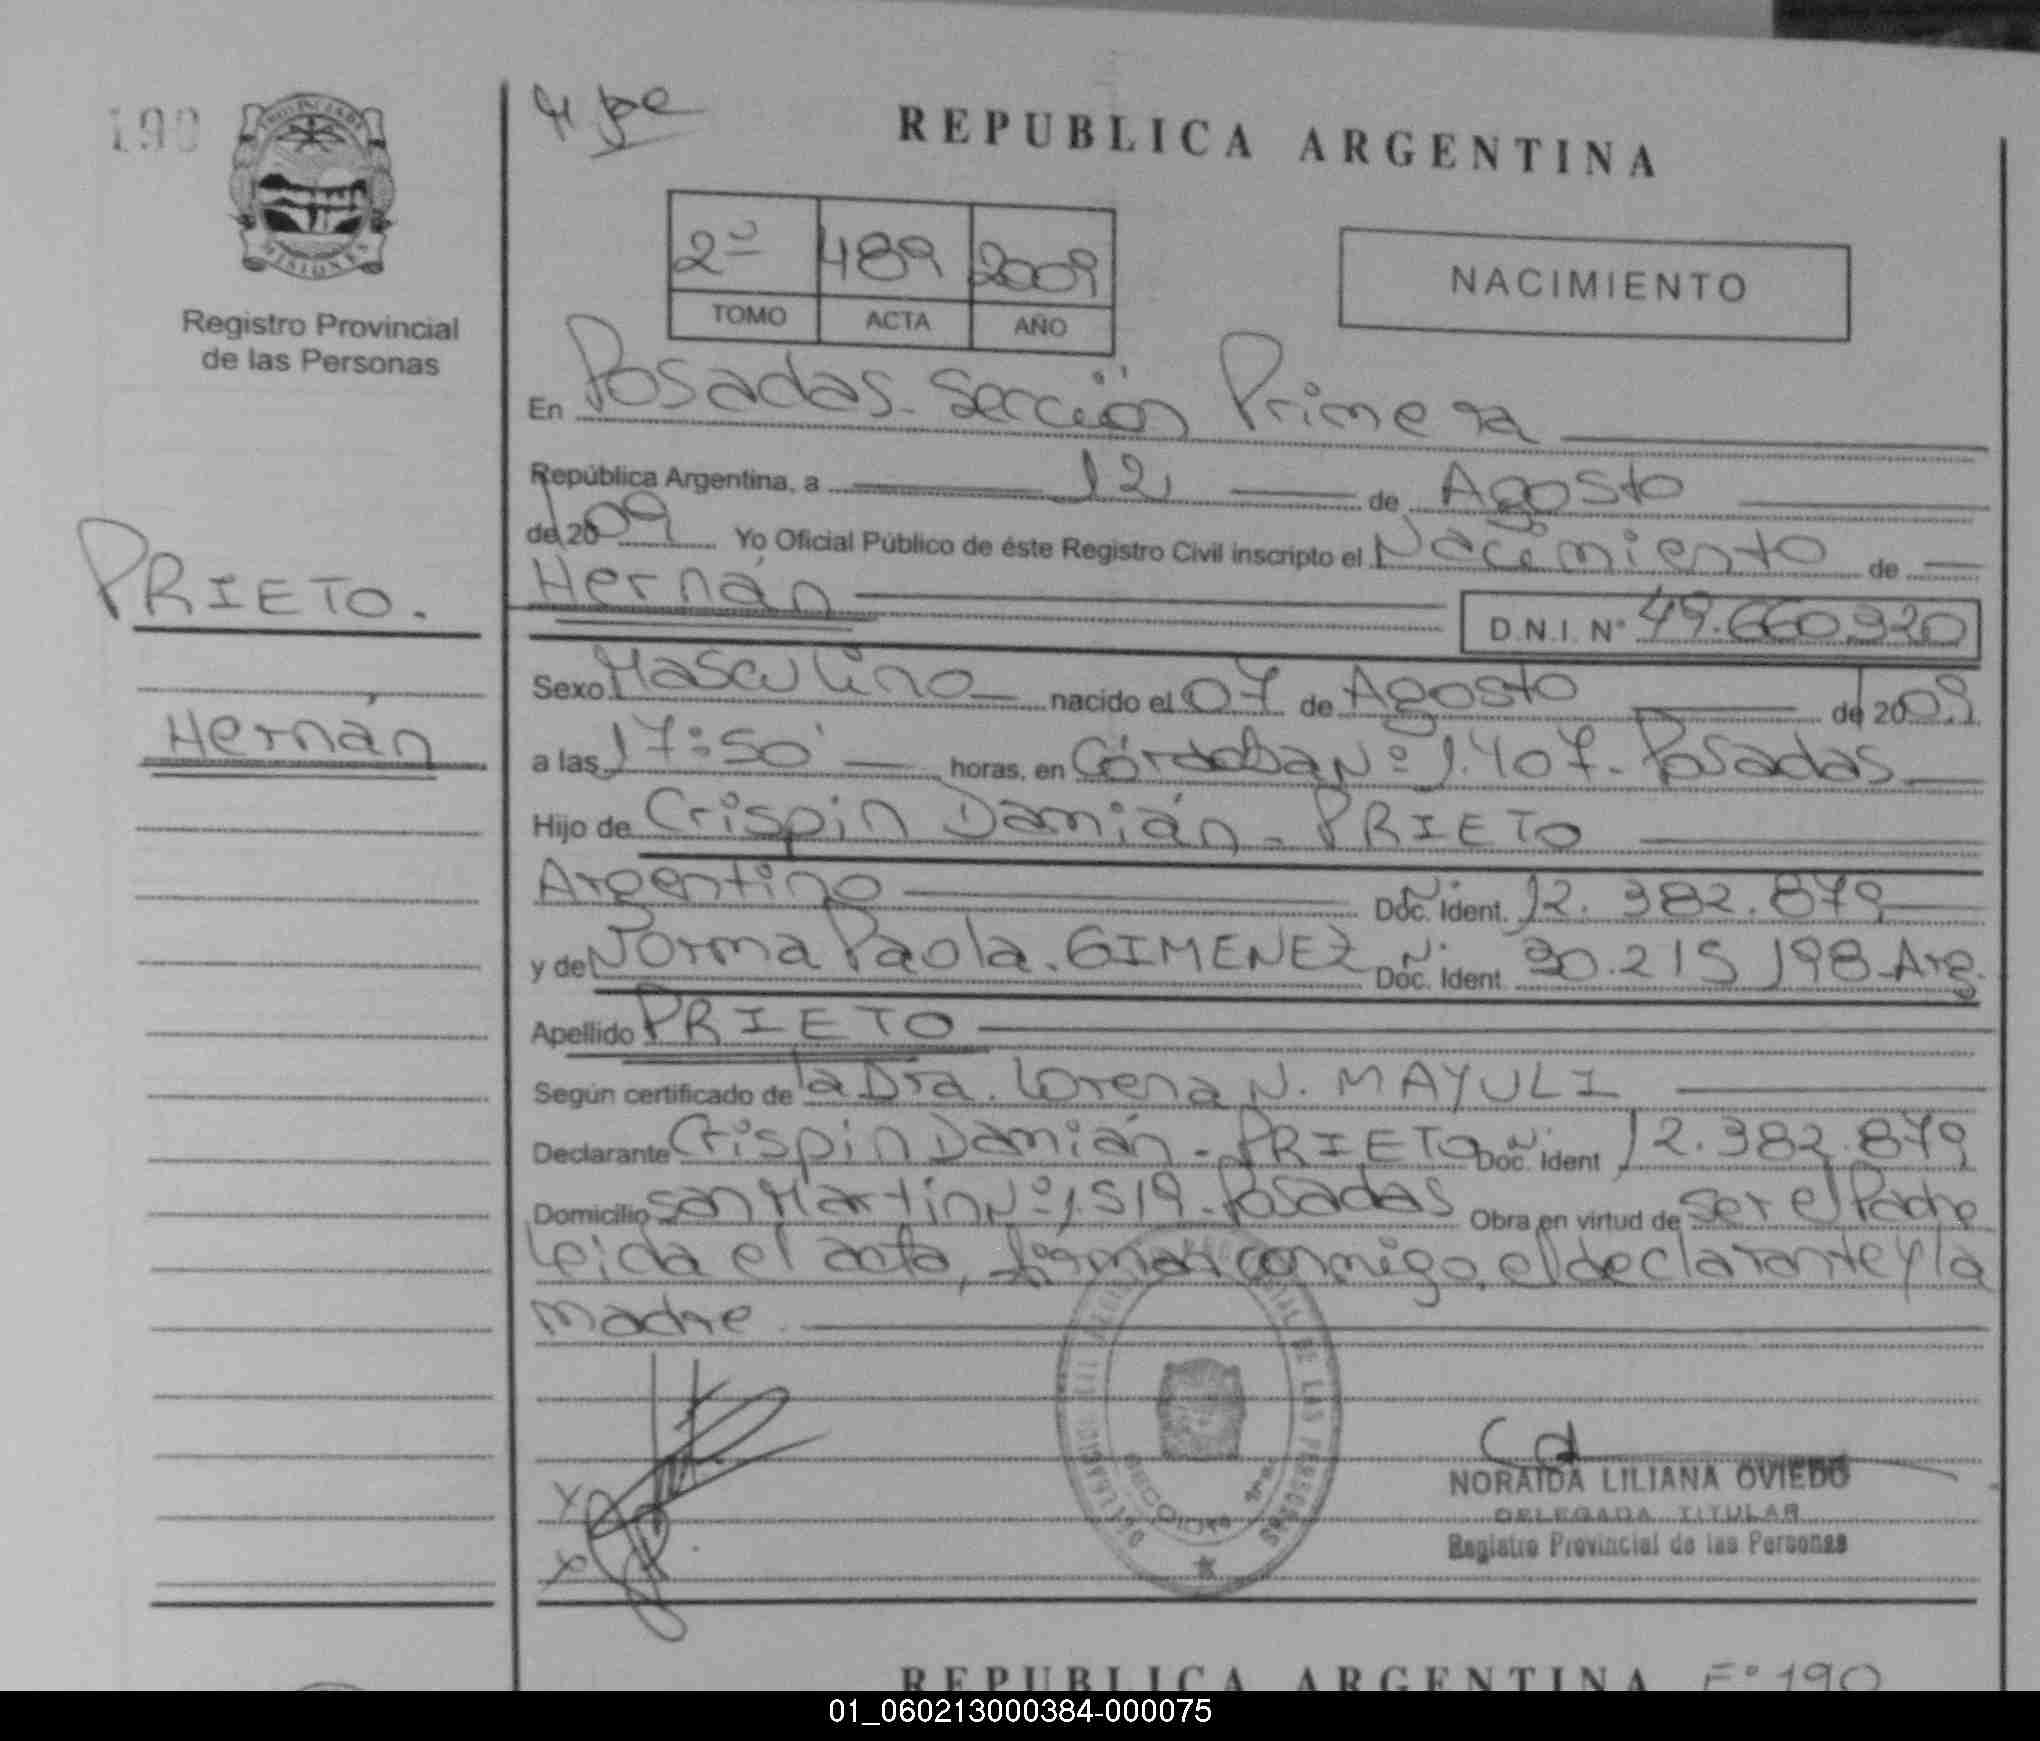 190
PROVINCIA DE
MISIONES
Registro Provincial
de las Personas
REPUBLICA ARGENTINA
2º 489 2009
TOMO ACTA AÑO
NACIMIENTO
En Posadas. Sección Primera
República Argentina, a 12 de Agosto
de 2009 Yo Oficial Público de éste Registro Civil inscripto el Nacimiento de
Hernán
D.N.I. Nº 49.660.920
PRIETO.
Hernán
Sexo Masculino nacido el 07 de Agosto de 2009
a las 17:50 horas, en Córdoba Nº 1.407. Posadas
Hijo de Crispin Damián - PRIETO
Argentino Doc. Ident. 12.382.879
y de Norma Paola. GIMENEZ Doc. Ident. 30.215.198 Arg.
Apellido PRIETO
Según certificado de la Dra. Lorena N. MAYULI
Declarante Crispin Damián - PRIETO Doc. Ident 12.382.879
Domicilio San Martin Nº 1.519 - Posadas Obra en virtud de ser el Padre
Leida el acta, firman conmigo, el declarante y la
madre
NORAIDA LILIANA OVIEDO
DELEGADA TITULAR
Registro Provincial de las Personas
REPUBLICA ARGENTINA Fº 190
01_060213000384-000075